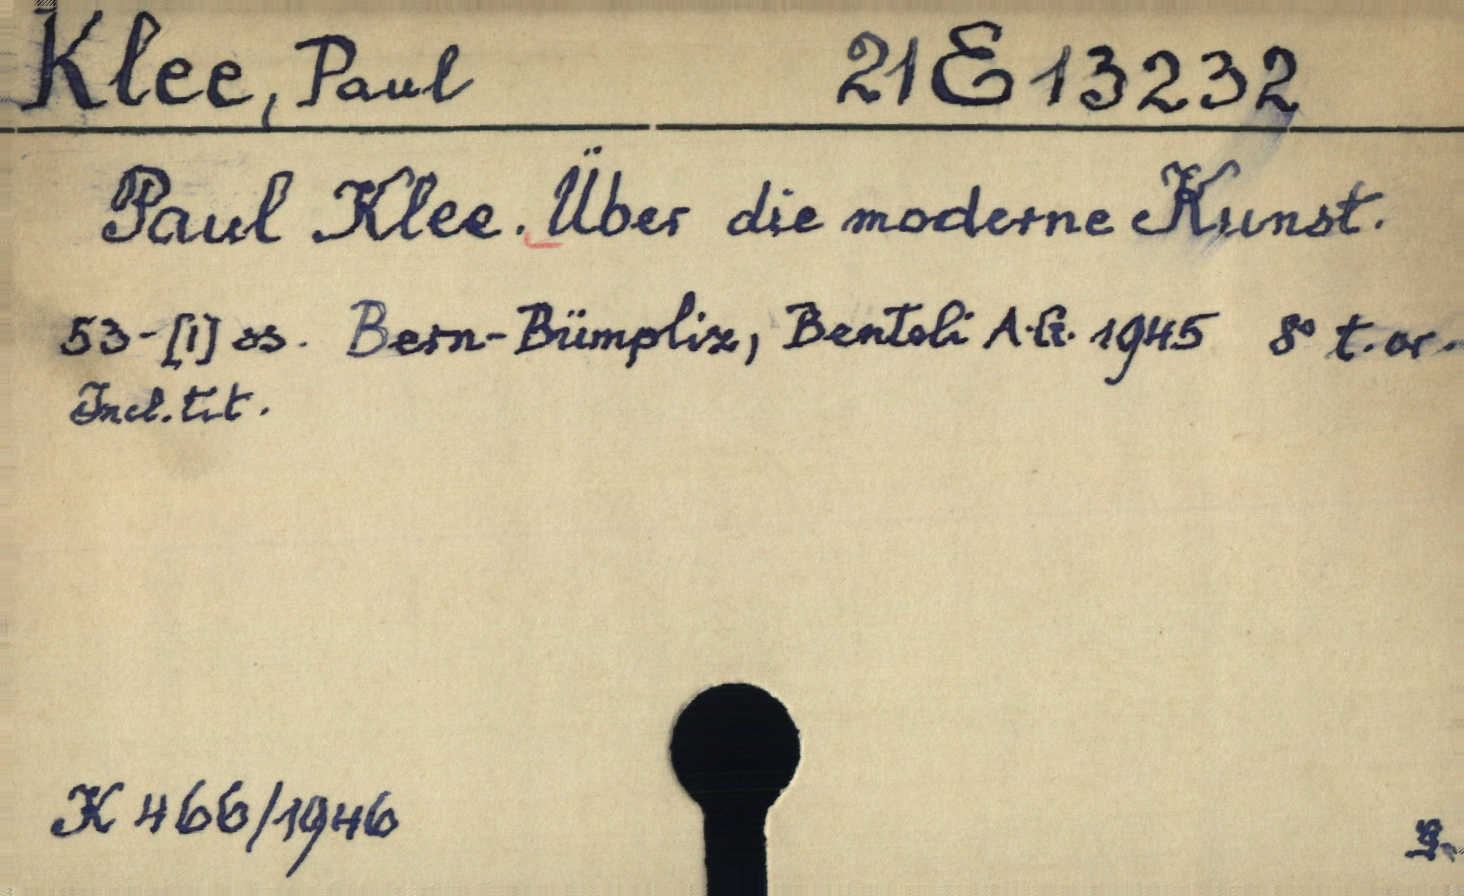 Klee, Paul 21 E 13232
Paul Klee. Über die moderne Kunst.
53-[1] ss. Bern-Bümpliz, Benteli A.G. 1945 8° t. or.
Incl. tit.
K 466/1946